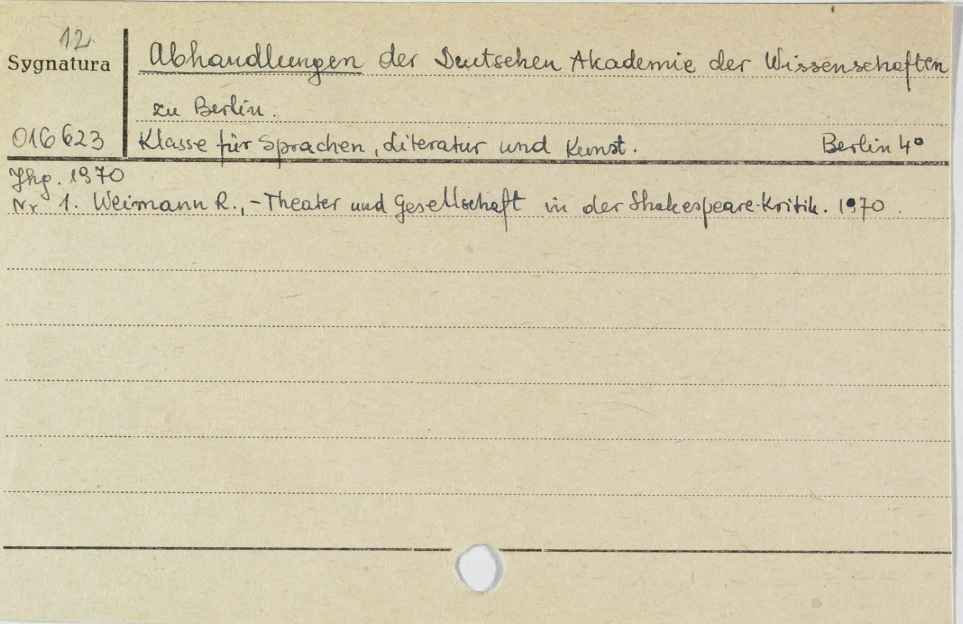 12
Sygnatura
Abhandlungen der Deutschen Akademie der Wissenschaften
zu Berlin.
016623
Klasse für Sprachen, Literatur und Kunst. Berlin 4°
Jhg. 1970
Nr 1. Weimann R., - Theater und Gesellschaft in der Shakespeare-Kritik. 1970.